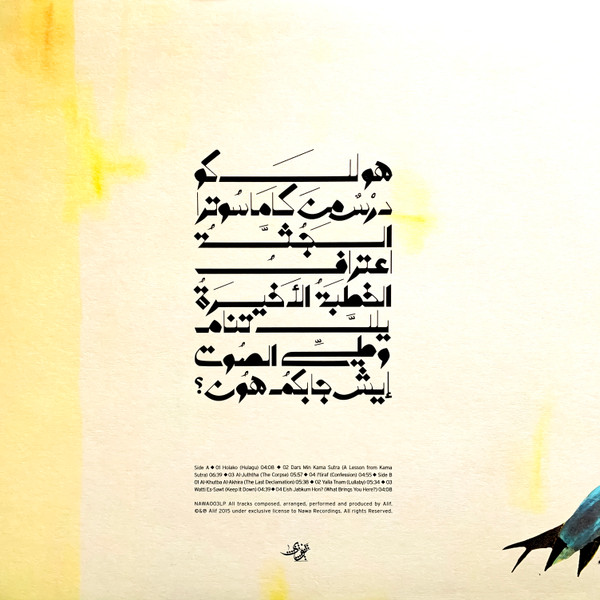 هولاكو
درسٌ منَ كاماسوترا
الجُثَّة
اعترافُ
الخطبةُ الأخيرةُ
يللَّا تنام
وطّي الصُوت
إيش جابكُم هُون؟
Side A ◆ 01 Holako (Hulagu) 04:08 ◆ 02 Dars Min Kama Sutra (A Lesson from Kama
Sutra) 06:39 ◆ 03 Al-Juththa (The Corpse) 05:57 ◆ 04 I'tiraf (Confession) 04:55 ◆ Side B
01 Al-Khutba Al-Akhira (The Last Declamation) 05:38 ◆ 02 Yalla Tnam (Lullaby) 05:34 ◆ 03
Watti Es-Sawt (Keep It Down) 04:39 ◆ 04 Eish Jabkum Hon? (What Brings You Here?) 04:08
NAWA003LP All tracks composed, arranged, performed and produced by Alif.
©&℗ Alif 2015 under exclusive license to Nawa Recordings. All rights Reserved.